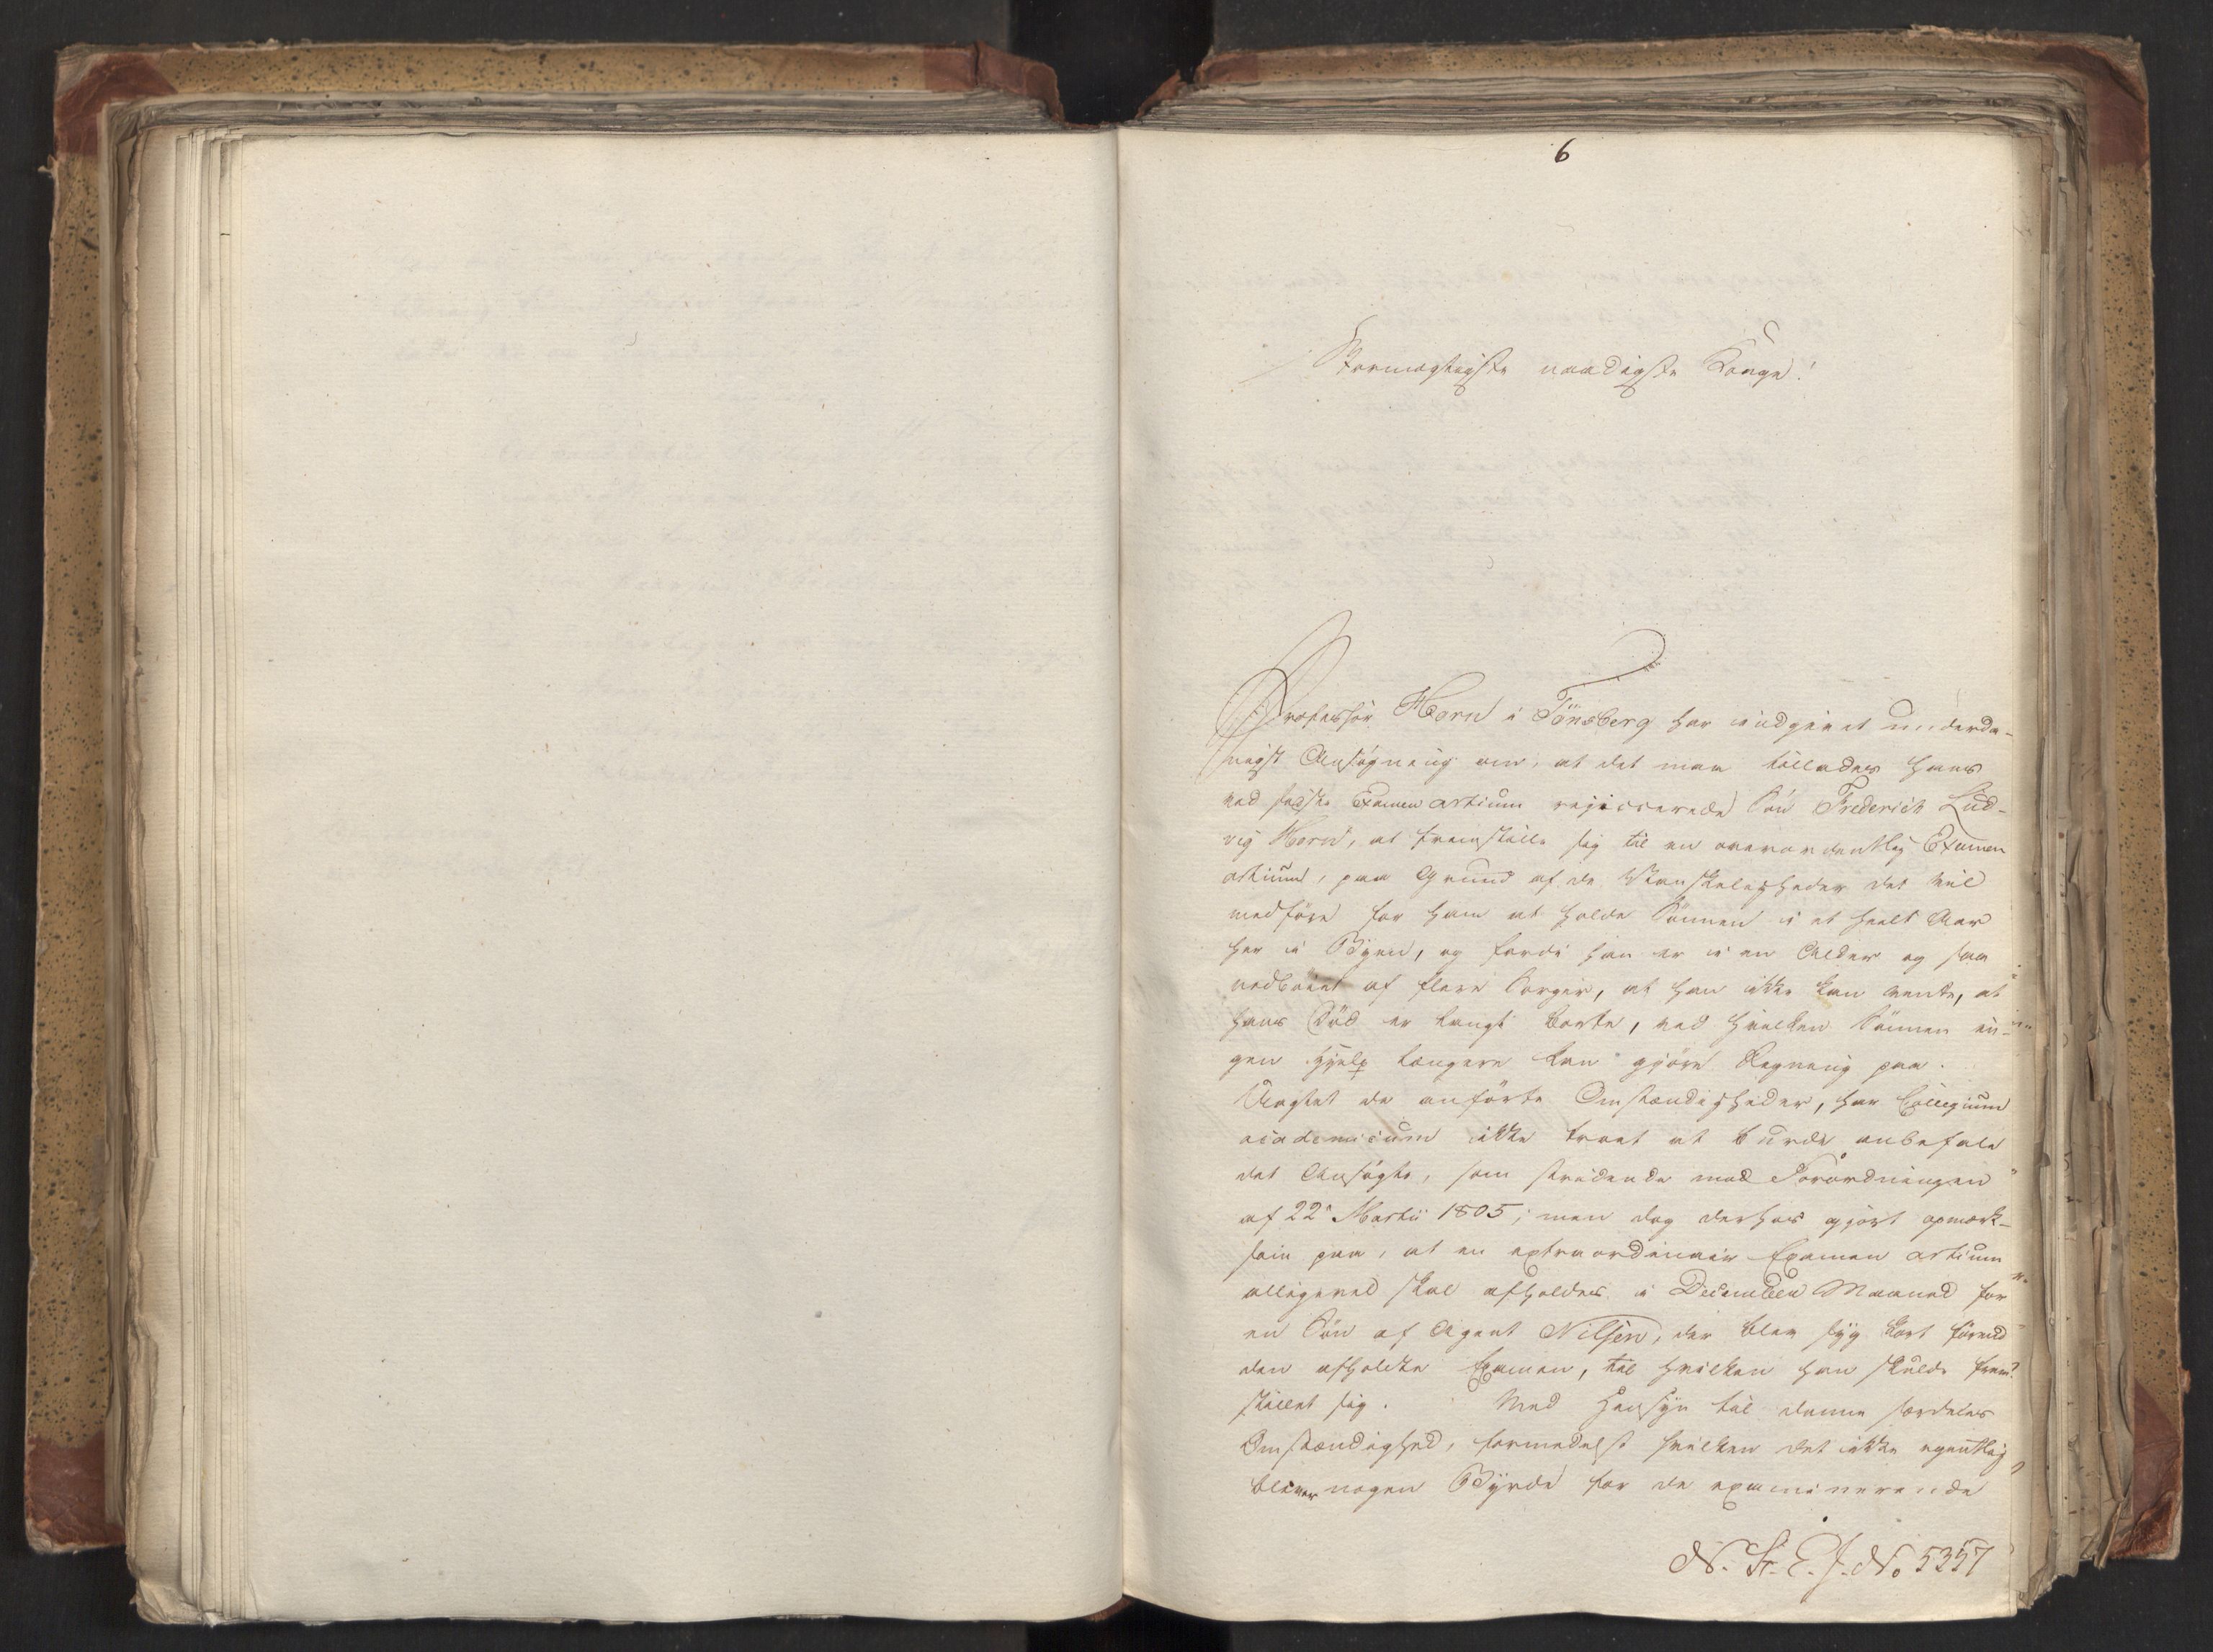 6
Stormægtigste naadigste Konge!
Professor Horn i Tönsberg har indgivet underda-
nigst Ansögning om, at det maa tillades hans
ved sidste Examen artium rejicerede Sön Frederich Lud-
vig Horn, at fremstille sig til en overordentlig Examen
artium, paa Grund af de Vanskeligheder det vil
medföre for ham at holde Sönnen i et heelt Aar
her i Byen, og fordi han er i en Alder og saa
nedböiet af flere Sorger, at han ikke kan vente, at
hans Död er langt borte, ved hvilken Sönnen in-
gen Hjelp længere kan gjöre Regning paa.
Uagtet de anförte Omstændigheder, har Collegium
academicum ikke troet at burde anbefale
det Ansögte, som stridende mod Forordningen
af 22 Martii 1805; men dog derhos gjort opmærk-
som paa, at en extraordinair Examen artium
alligevel skal afholdes i December Maaned for
en Sön af Agent Nilsen, der blev syg kort förend
den afholdte Examen, til hvilken han skulde frem-
stillet sig. Med Hensyn til denne særdeles
Omstændighed, formedelst hvilken det ikke egentlig
bliver nogen Byrde for de examinerende
N. St. E. J. No 5357